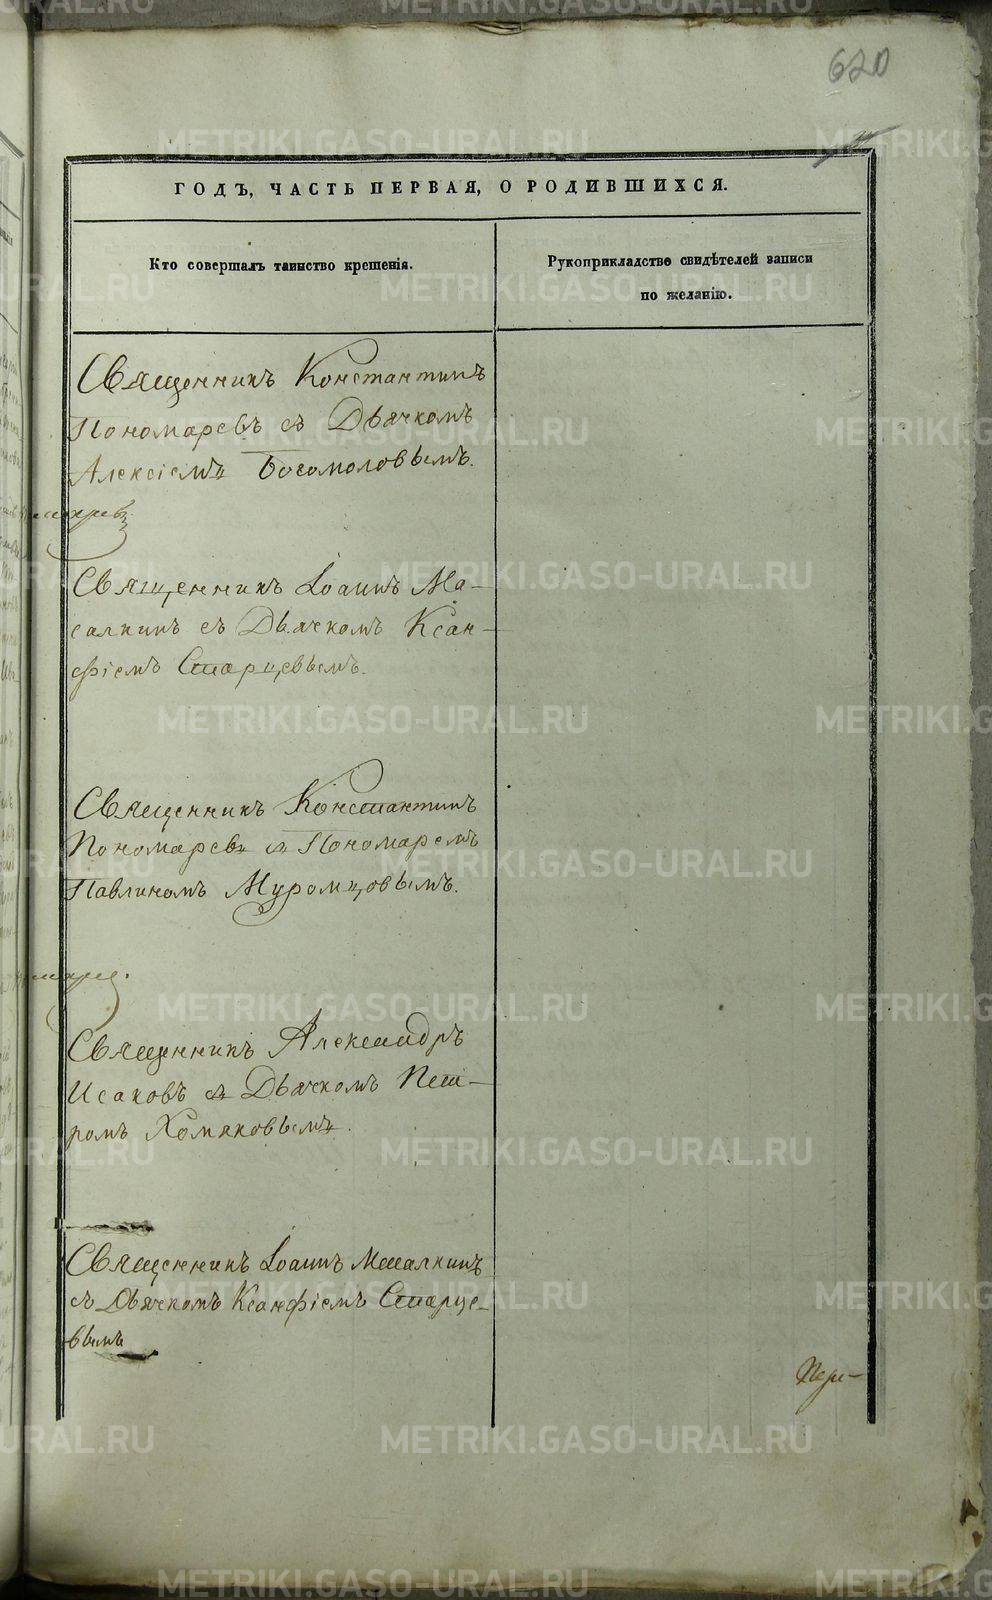 620
ГОДЪ, ЧАСТЬ ПЕРВАЯ, О РОДИВШИХСЯ.
Кто совершалъ таинство крещенія.
Рукоприкладство свидѣтелей записи
по желанію.
Священникъ Константинъ
Пономаревъ съ Дьячкомъ
Алексіемъ Богомоловымъ.
Священникъ Іоаннъ Ма-
салкинъ съ Дьячкомъ Ксан-
фіемъ Старцевымъ.
Священникъ Константинъ
Пономаревъ съ Пономаремъ
Павлиномъ Муромцовымъ.
Священникъ Александръ
Исаковъ съ Дьячкомъ Пет-
ромъ Хомяковымъ.
Священникъ Іоаннъ Масалкинъ
съ Дьячкомъ Ксанфіемъ Старце-
вымъ
METRIKI.GASO-URAL.RU